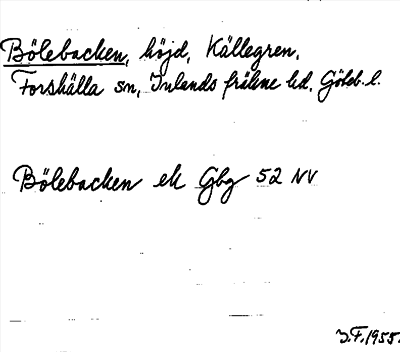 Bölebacken, höjd, Källegren,
Forshälla sn, Inlands fräkne hd, Göteb. l.
Bölebacken ek Gbg 52 NV
J.F. 1955.